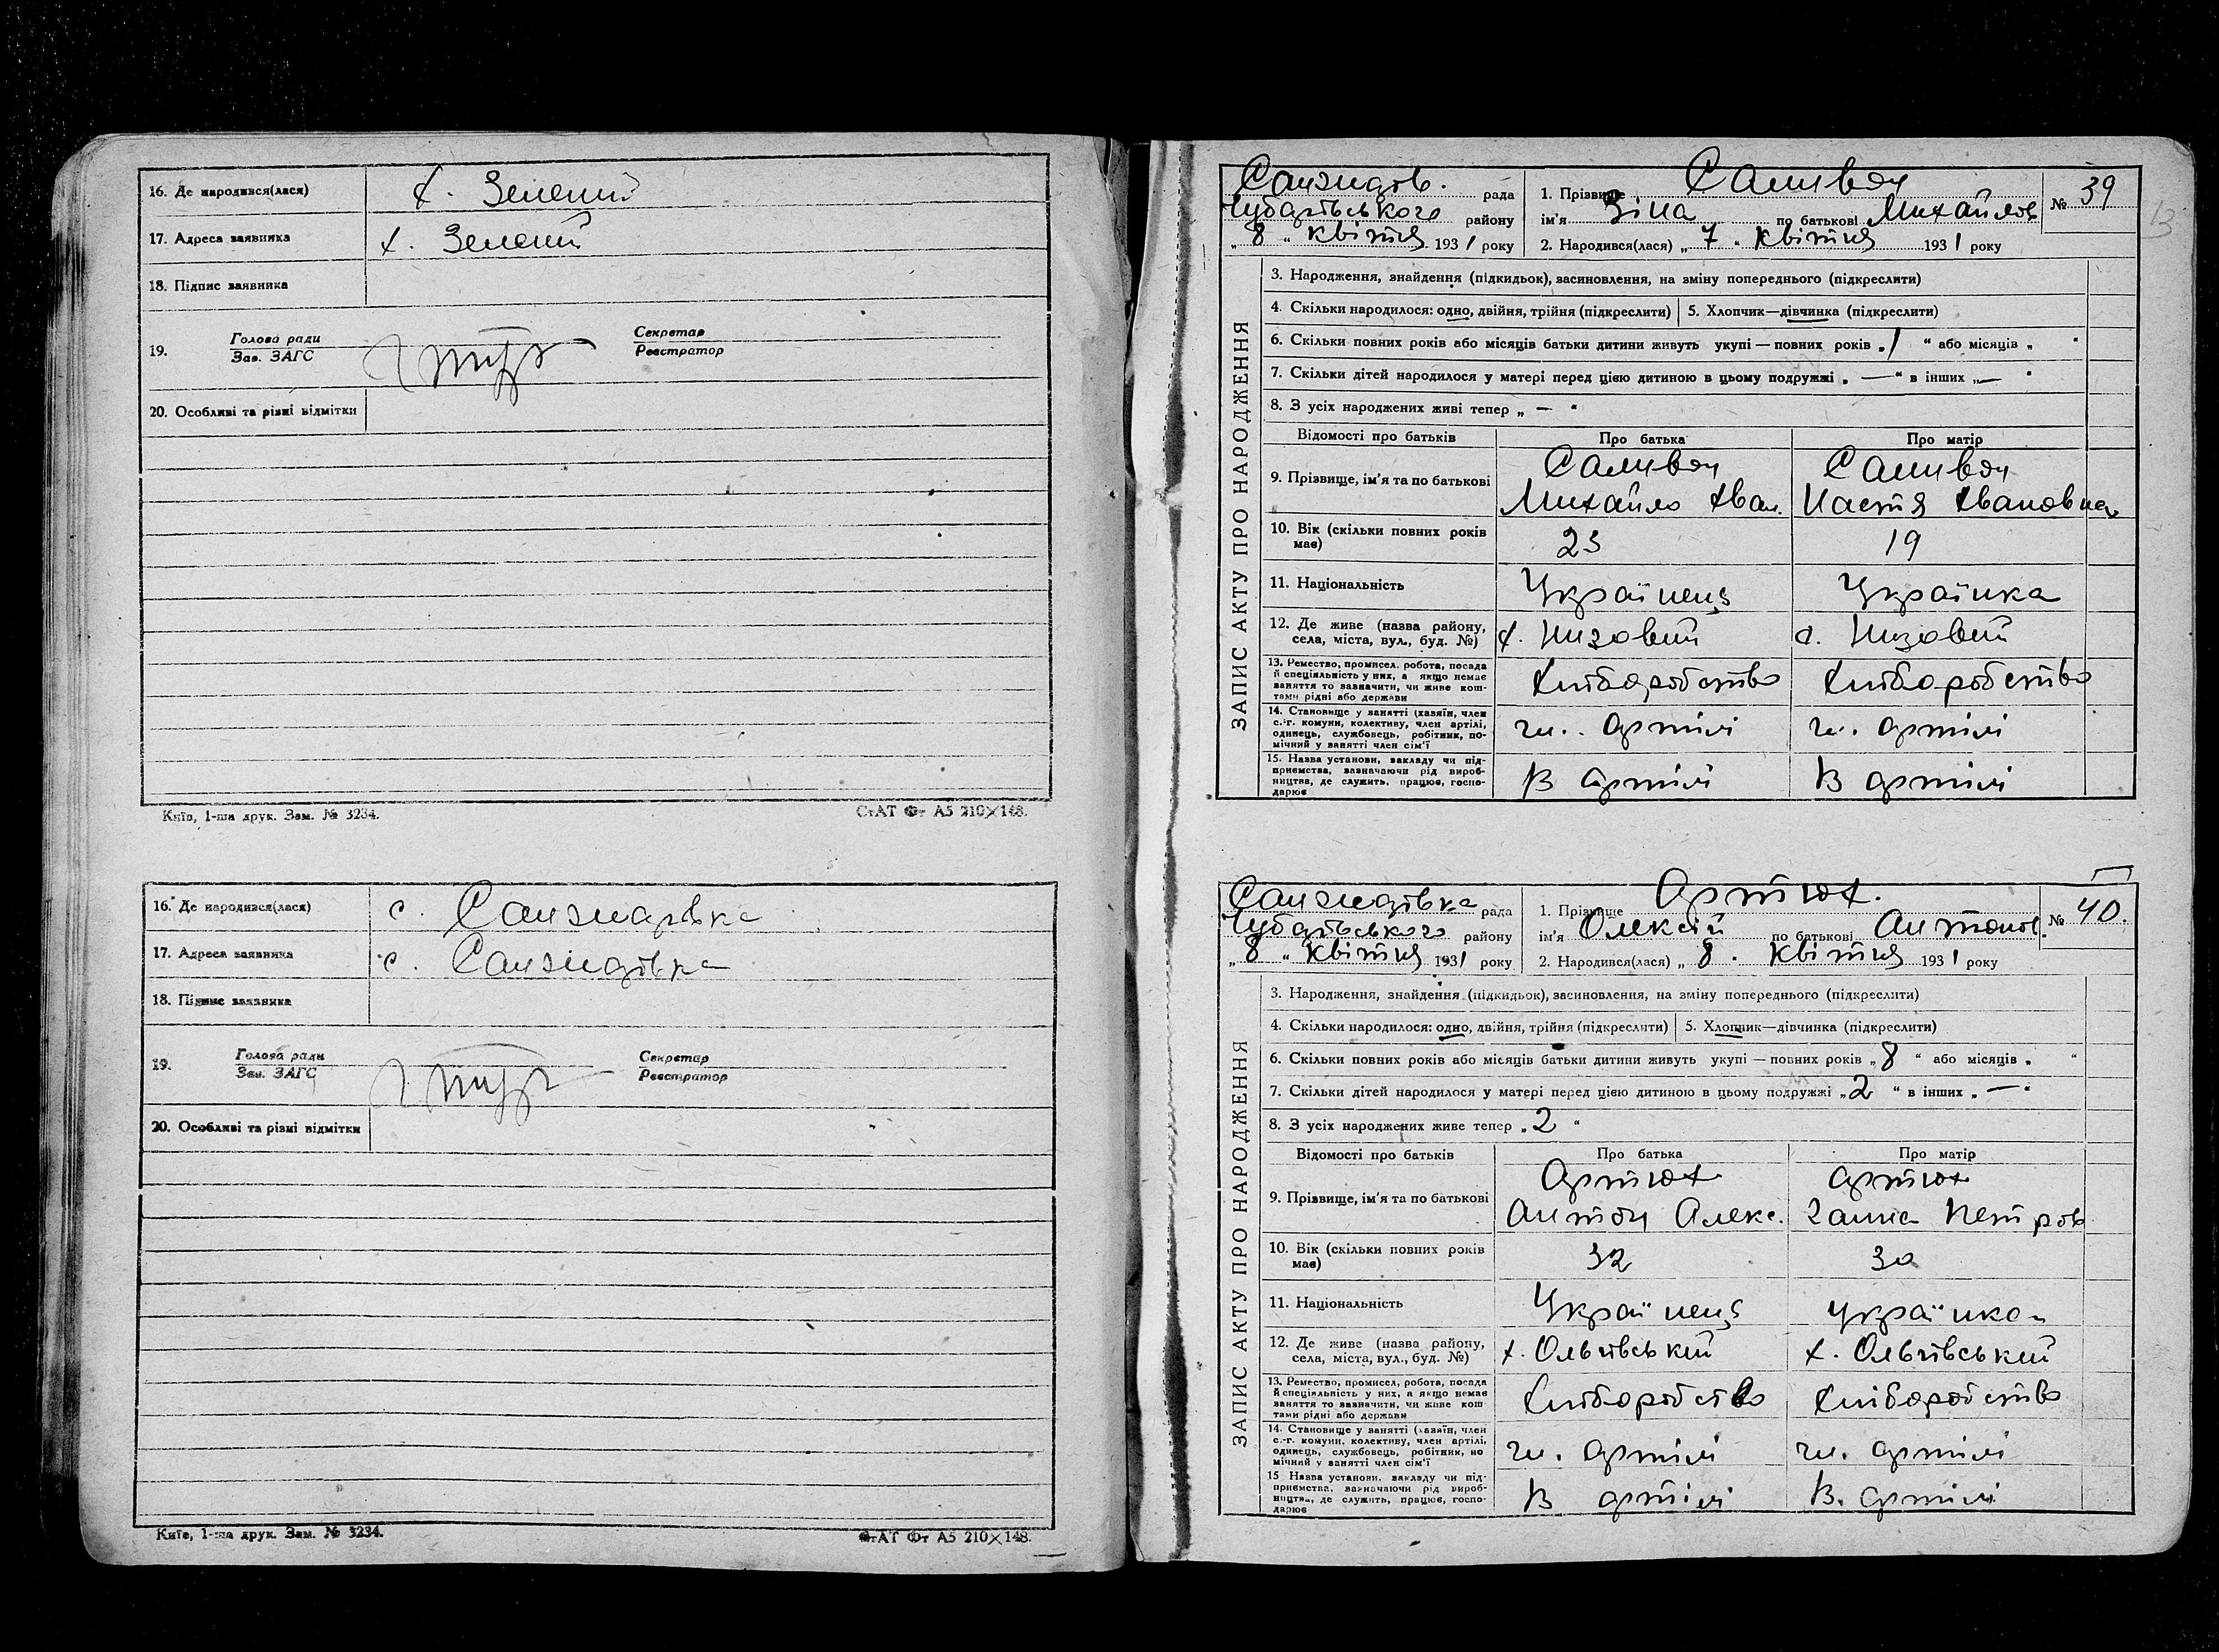 16. Де народився(лася) х. Зелений
17. Адреса заявника х. Зелений
18. Підпис заявника
19. Голова ради Секретар
Зав. ЗАГС Реєстратор
20. Особливі та різні відмітки
Київ, 1-ша друк. Зам. № 3234. СтАТ Фт А5 210×148.
16. Де народився(лася) с. Санжарівка
17. Адреса заявника с. Санжарівка
18. Підпис заявника
19. Голова ради Секретар
Зав. ЗАГС Реєстратор
20. Особливі та різні відмітки
Київ, 1-ша друк. Зам. № 3234. СтАТ Фт А5 210×148.
13
ЗАПИС АКТУ ПРО НАРОДЖЕННЯ
Санжарів. рада
Чубарівського району
„8„ Квітня 1931 року
1. Прізвище Саливон
ім'я Зіна по батькові Михайлов
2. Народився(лася) „7„ Квітня 1931 року
№ 39
3. Народження, знайдення (підкидьок), засиновлення, на зміну попереднього (підкреслити)
4. Скільки народилося: одно, двійня, трійня (підкреслити) 5. Хлопчик—дівчинка (підкреслити)
6. Скільки повних років або місяців батьки дитини живуть укупі — повних років „1“ або місяців „ “
7. Скільки дітей народилося у матері перед цією дитиною в цьому подружжі „—“ в інших „—“
8. З усіх народжених живі тепер „—“
Відомості про батьків Про батька Про матір
9. Прізвище, ім'я та по батькові Саливон Саливон
Михайло Іван. Настя Івановна
10. Вік (скільки повних років має) 23 19
11. Національність Українець Українка
12. Де живе (назва району, села, міста, вул., буд. №) х. Низовий х. Низовий
13. Ремество, промисел, робота, посада й спеціяльність у них, а якщо немає заняття то зазначити, чи живе коштами рідні або держави Хліборобство Хліборобство
14. Становище у занятті (хазяїн, член с.-г. комуни, колективу, член артілі, одинець, службовець, робітник, помічний у занятті член сім'ї чл. артілі чл. артілі
15. Назва установи, закладу чи підприємства, зазначаючи рід виробництва, де служить, працює, господарює В артілі В артілі
ЗАПИС АКТУ ПРО НАРОДЖЕННЯ
Санжарівка рада
Чубарівського району
„8„ Квітня 1931 року
1. Прізвище Артюх.
ім'я Олексій по батькові Антонов.
2. Народився(лася) „8. Квітня 1931 року
№ 40.
3. Народження, знайдення (підкидьок), засиновлення, на зміну попереднього (підкреслити)
4. Скільки народилося: одно, двійня, трійня (підкреслити) 5. Хлопчик—дівчинка (підкреслити)
6. Скільки повних років або місяців батьки дитини живуть укупі — повних років „8“ або місяців „ “
7. Скільки дітей народилося у матері перед цією дитиною в цьому подружжі „2“ в інших „—“
8. З усіх народжених живе тепер „2“
Відомості про батьків Про батька Про матір
9. Прізвище, ім'я та по батькові Артюх Артюх
Антон Алекс. Ганна Петров
10. Вік (скільки повних років має) 32 30
11. Національність Українець Українка
12. Де живе (назва району, села, міста, вул., буд. №) х. Ольгівський х. Ольгівський
13. Ремество, промисел, робота, посада й спеціяльність у них, а якщо немає заняття то зазначити, чи живе коштами рідні або держави Хліборобство Хліборобство
14. Становище у занятті (хазяїн, член с.-г. комуни, колективу, член артілі, одинець, службовець, робітник, помічний у занятті член сім'ї чл. артілі чл. артілі
15 Назва установи, закладу чи підприємства, зазначаючи рід виробництва, де служить, працює, господарює В артілі В. артілі